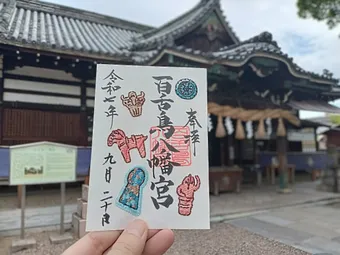 奉拝
百舌鳥八幡宮
令和七年九月二十日